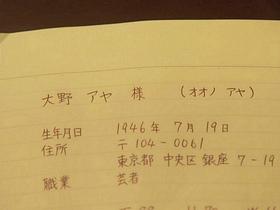 大野 アヤ 様 (オオノ アヤ)
生年月日 1946年 7月 19日
住所 〒104-0061
東京都 中央区 銀座 7-19
職業 芸者